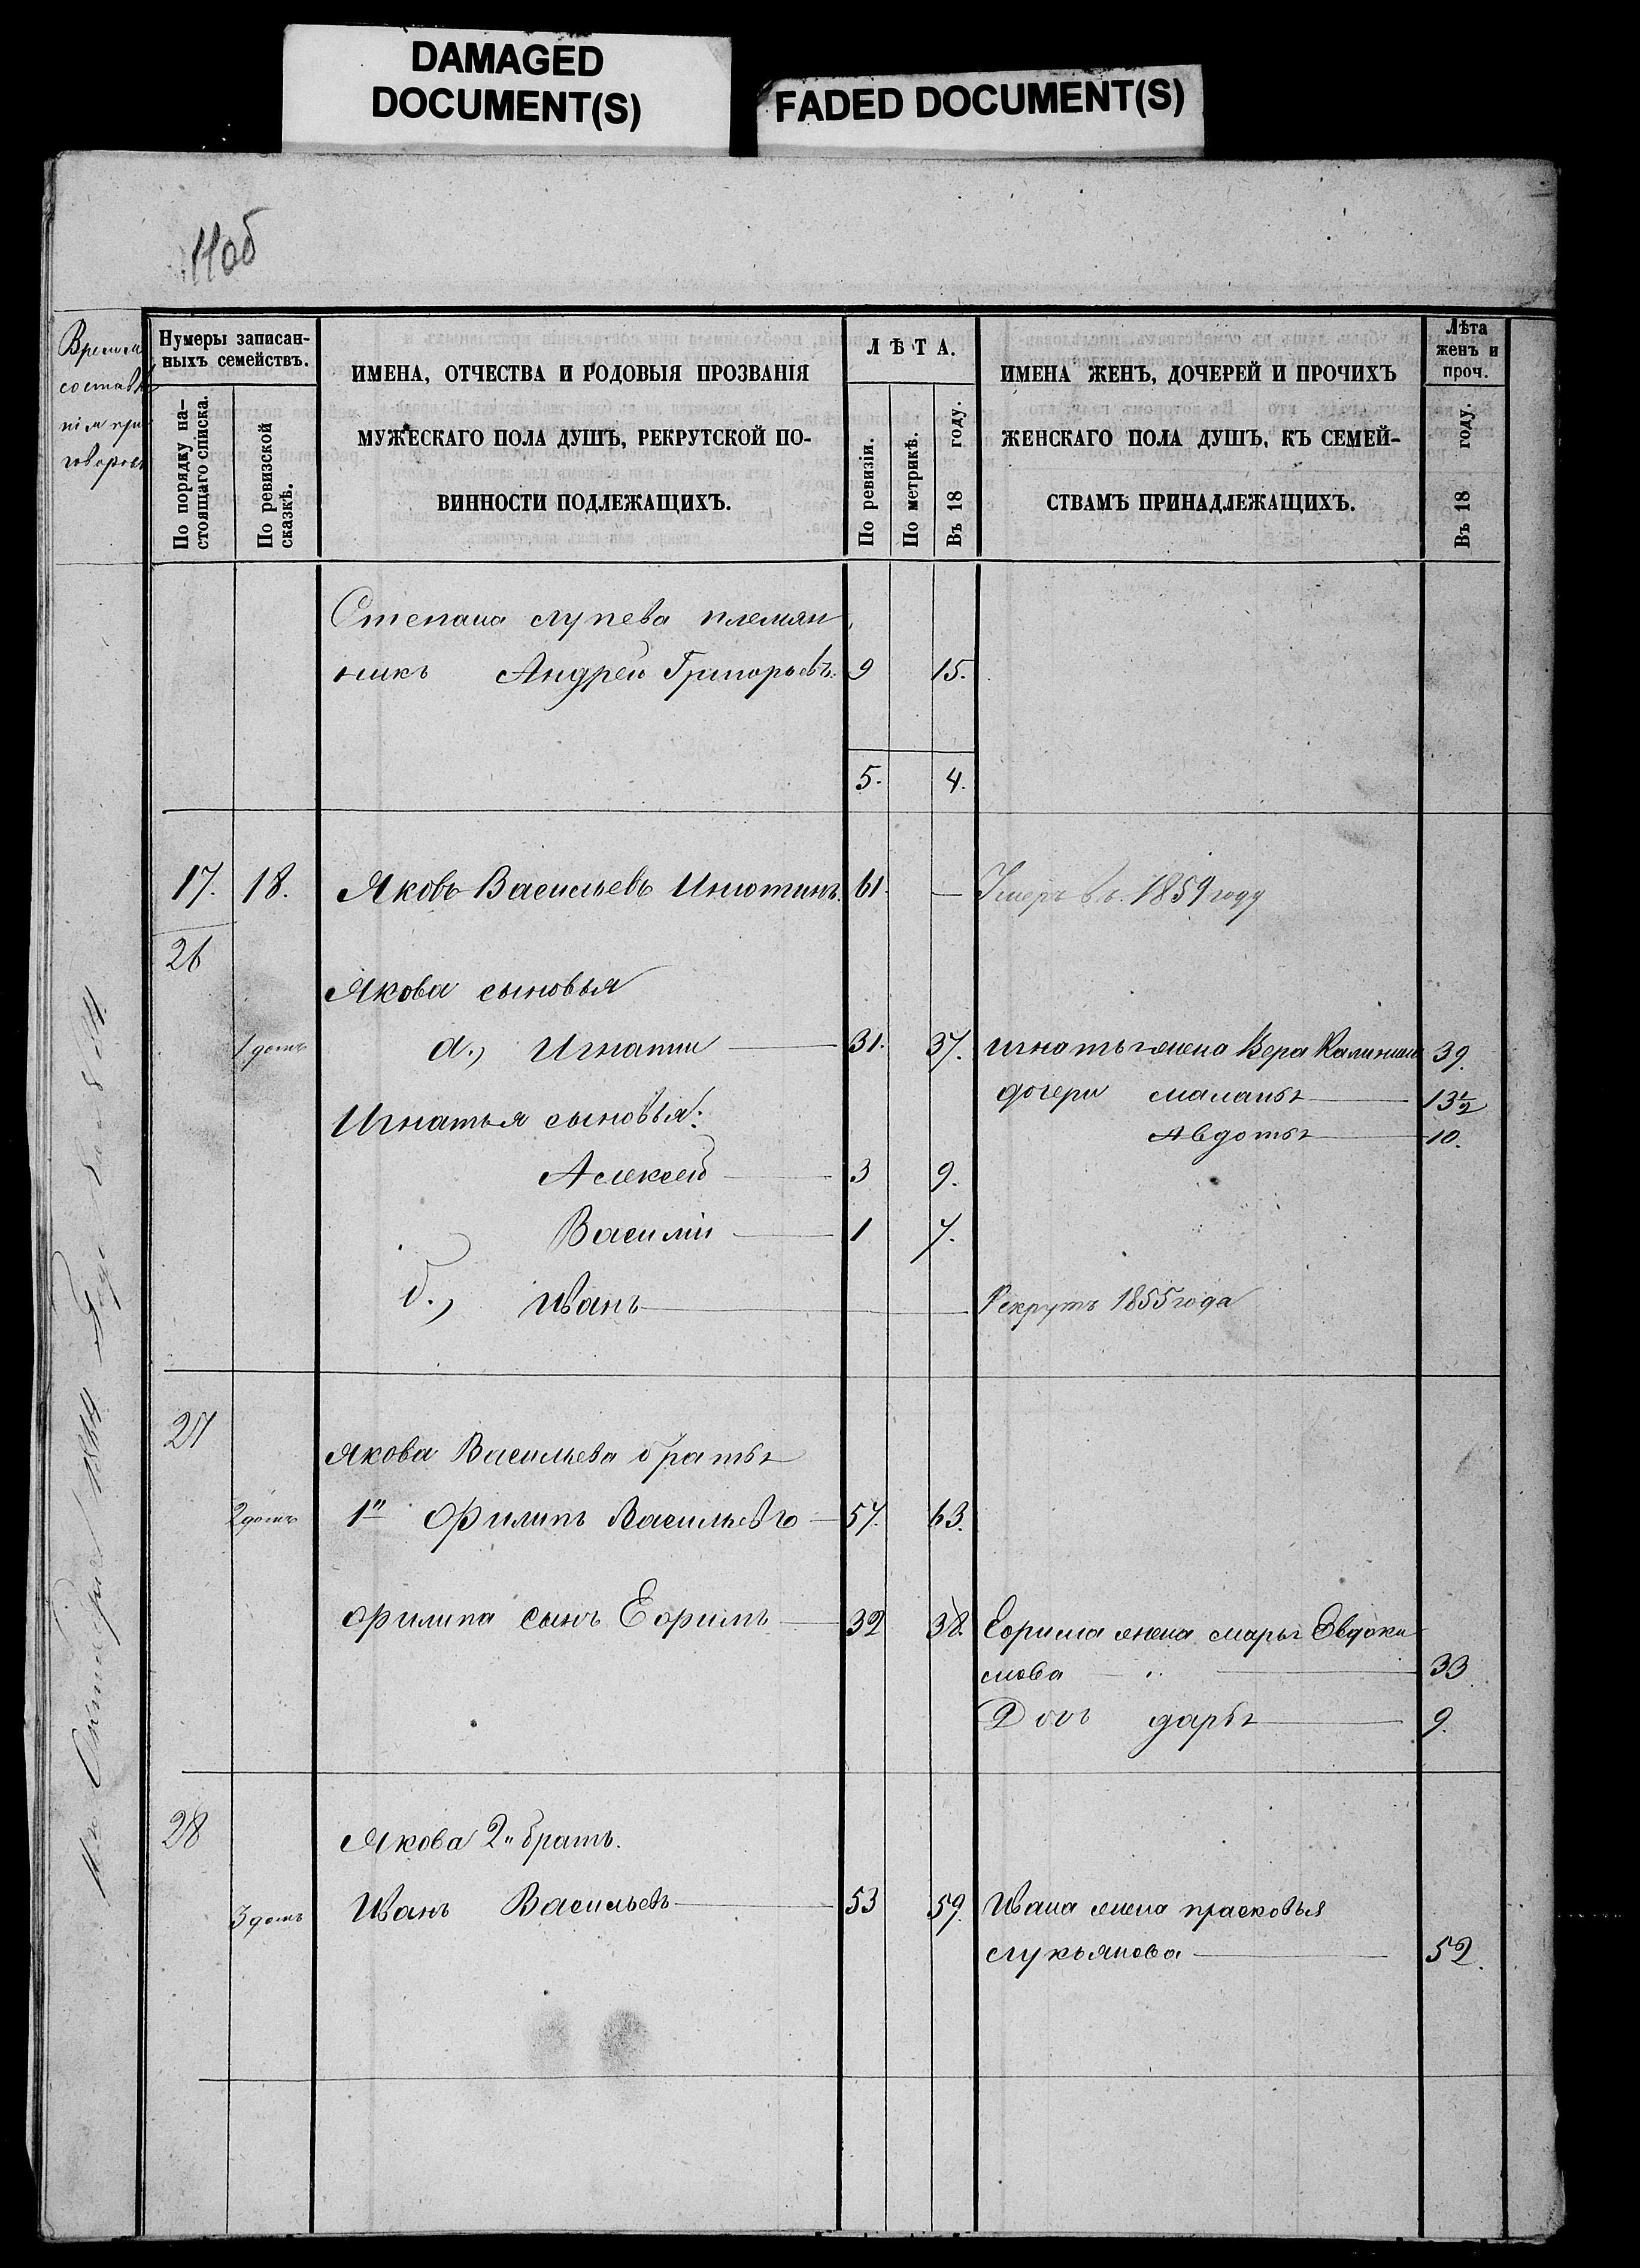 DAMAGED
DOCUMENT(S)
FADED DOCUMENT(S)
11об
Нумеры записан-
ныхъ семействъ.
По порядку на-
стоящаго списка.
По ревизской
сказкѣ.
ИМЕНА, ОТЧЕСТВА И РОДОВЫЯ ПРОЗВАНІЯ
МУЖЕСКАГО ПОЛА ДУШЪ, РЕКРУТСКОЙ ПО-
ВИННОСТИ ПОДЛЕЖАЩИХЪ.
ЛѢТА.
По ревизіи.
По метрикѣ.
Въ 18 году.
ИМЕНА ЖЕНЪ, ДОЧЕРЕЙ И ПРОЧИХЪ
ЖЕНСКАГО ПОЛА ДУШЪ, КЪ СЕМЕЙ-
СТВАМЪ ПРИНАДЛЕЖАЩИХЪ.
Лѣта
женъ и
проч.
Въ 18 году.
Степана Лупева племян
никъ Андрей Григорьевъ. 9 15.
5. 4.
17. 18. Яковъ Васильевъ Инютинъ. 61. — Умеръ въ. 1859 году
26
Якова сыновья
1 домъ а., Игнатии 31. 37. Игнатья жена Вера Калинина 39.
дочери Маланья 13½
Игнатья сыновья:
Авдотья 10.
Алексей 3 9.
Василіи 1 7.
б., Иванъ Рекрутъ 1855 года
27
Якова Васильева братья
2 домъ 1й Филипъ Васильевъ 57. 63.
Филипа сынъ Ефимъ 32 38. Ефима жена Марья Евдоки
мова 33
Дочь Дарья 9.
28 Якова 2й братъ.
3 домъ Иванъ Васильевъ 53 59. Ивана жена Прасковья
Лукьянова 52.